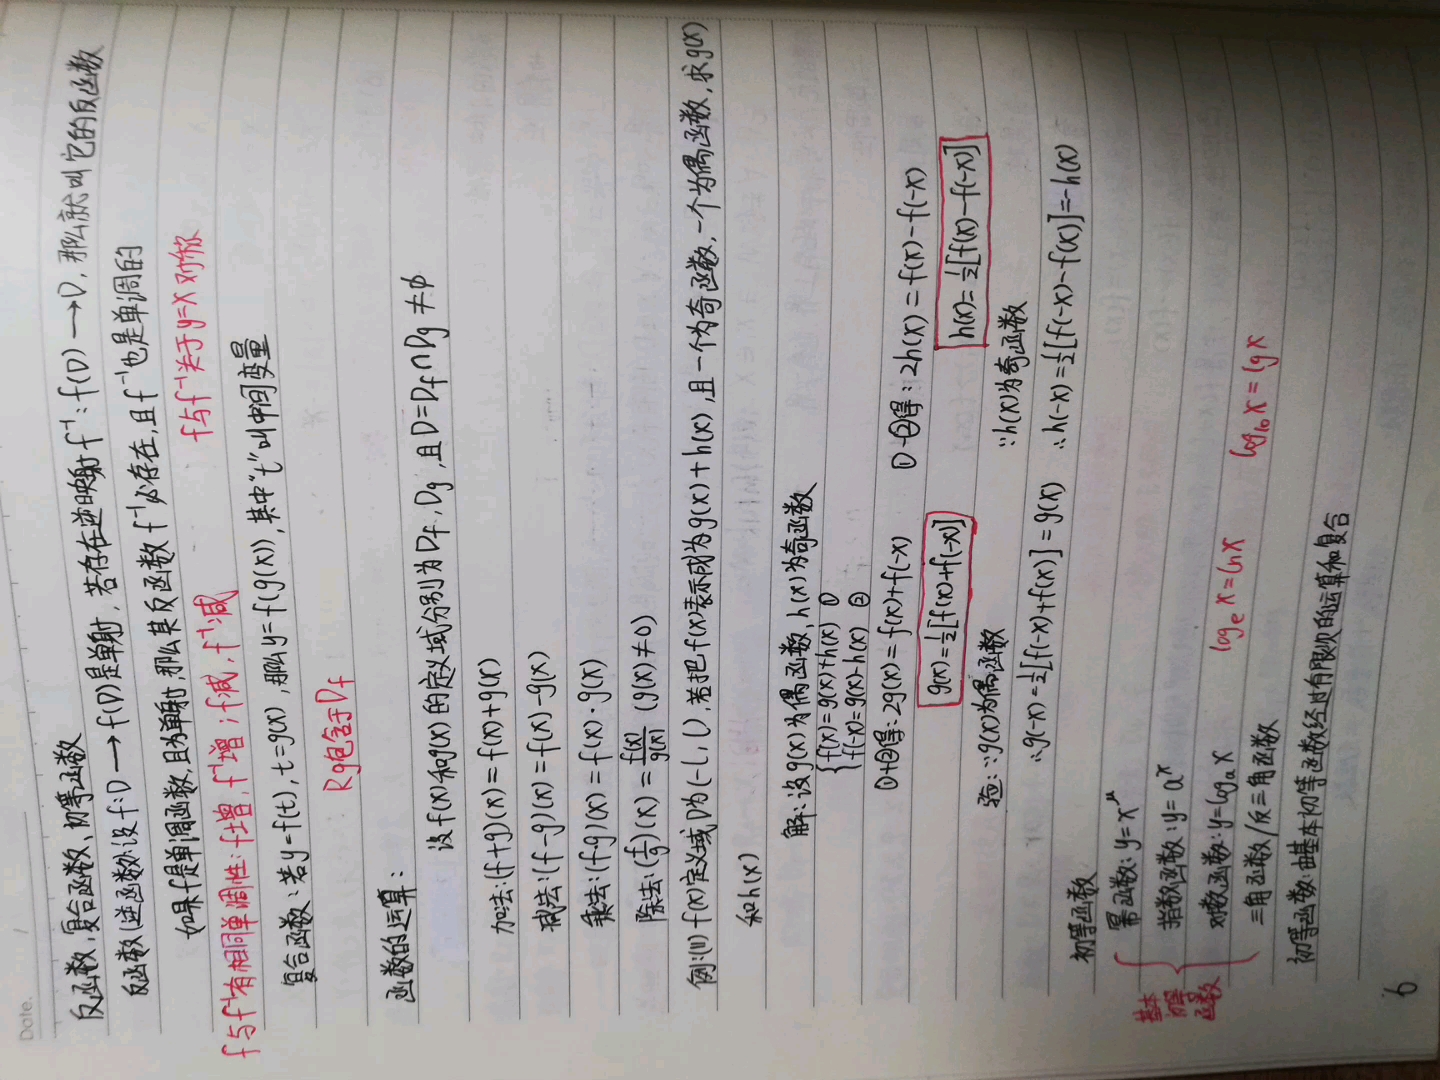 Date.
反函数,复合函数、初等函数
反函数(逆函数):设f:D→f(D)是单射,若存在逆映射f⁻¹:f(D)→D,那么就叫它的反函数
如果f是单调函数,且为单射,那么其反函数f⁻¹必存在,且f⁻¹也是单调的
f与f⁻¹有相同单调性:f增,f⁻¹增;f减,f⁻¹减 f与f⁻¹关于y=x对称
复合函数:若y=f(t),t=g(x),那么y=f(g(x)),其中"t"叫中间变量
Rg包含于Df
函数的运算:
设f(x)和g(x)的定义域分别为Df,Dg,且D=Df∩Dg≠∅
加法:(f+g)(x)=f(x)+g(x)
减法:(f-g)(x)=f(x)-g(x)
乘法:(f·g)(x)=f(x)·g(x)
除法:(f/g)(x)=f(x)/g(x) (g(x)≠0)
例:(11) f(x)定义域D为(-l,l),若把f(x)表示成为g(x)+h(x),且一个为奇函数,一个为偶函数,求g(x)
和h(x)
解:设g(x)为偶函数,h(x)为奇函数
{f(x)=g(x)+h(x) ①
f(x)=g(x)-h(x) ②
①+②得:2g(x)=f(x)+f(-x) ①-②得:2h(x)=f(x)-f(-x)
g(x)=½[f(x)+f(-x)] h(x)=½[f(x)-f(-x)]
验:∵g(x)为偶函数 ∵h(x)为奇函数
∴g(-x)=½[f(-x)+f(x)]=g(x) ∴h(-x)=½[f(-x)-f(x)]=-h(x)
初等函数
基本初等函数 { 幂函数:y=x^μ
指数函数:y=aˣ
对数函数:y=logₐx logₑx=lnx log₁₀x=lgx
三角函数/反三角函数
初等函数:由基本初等函数经过有限次的运算和复合
6